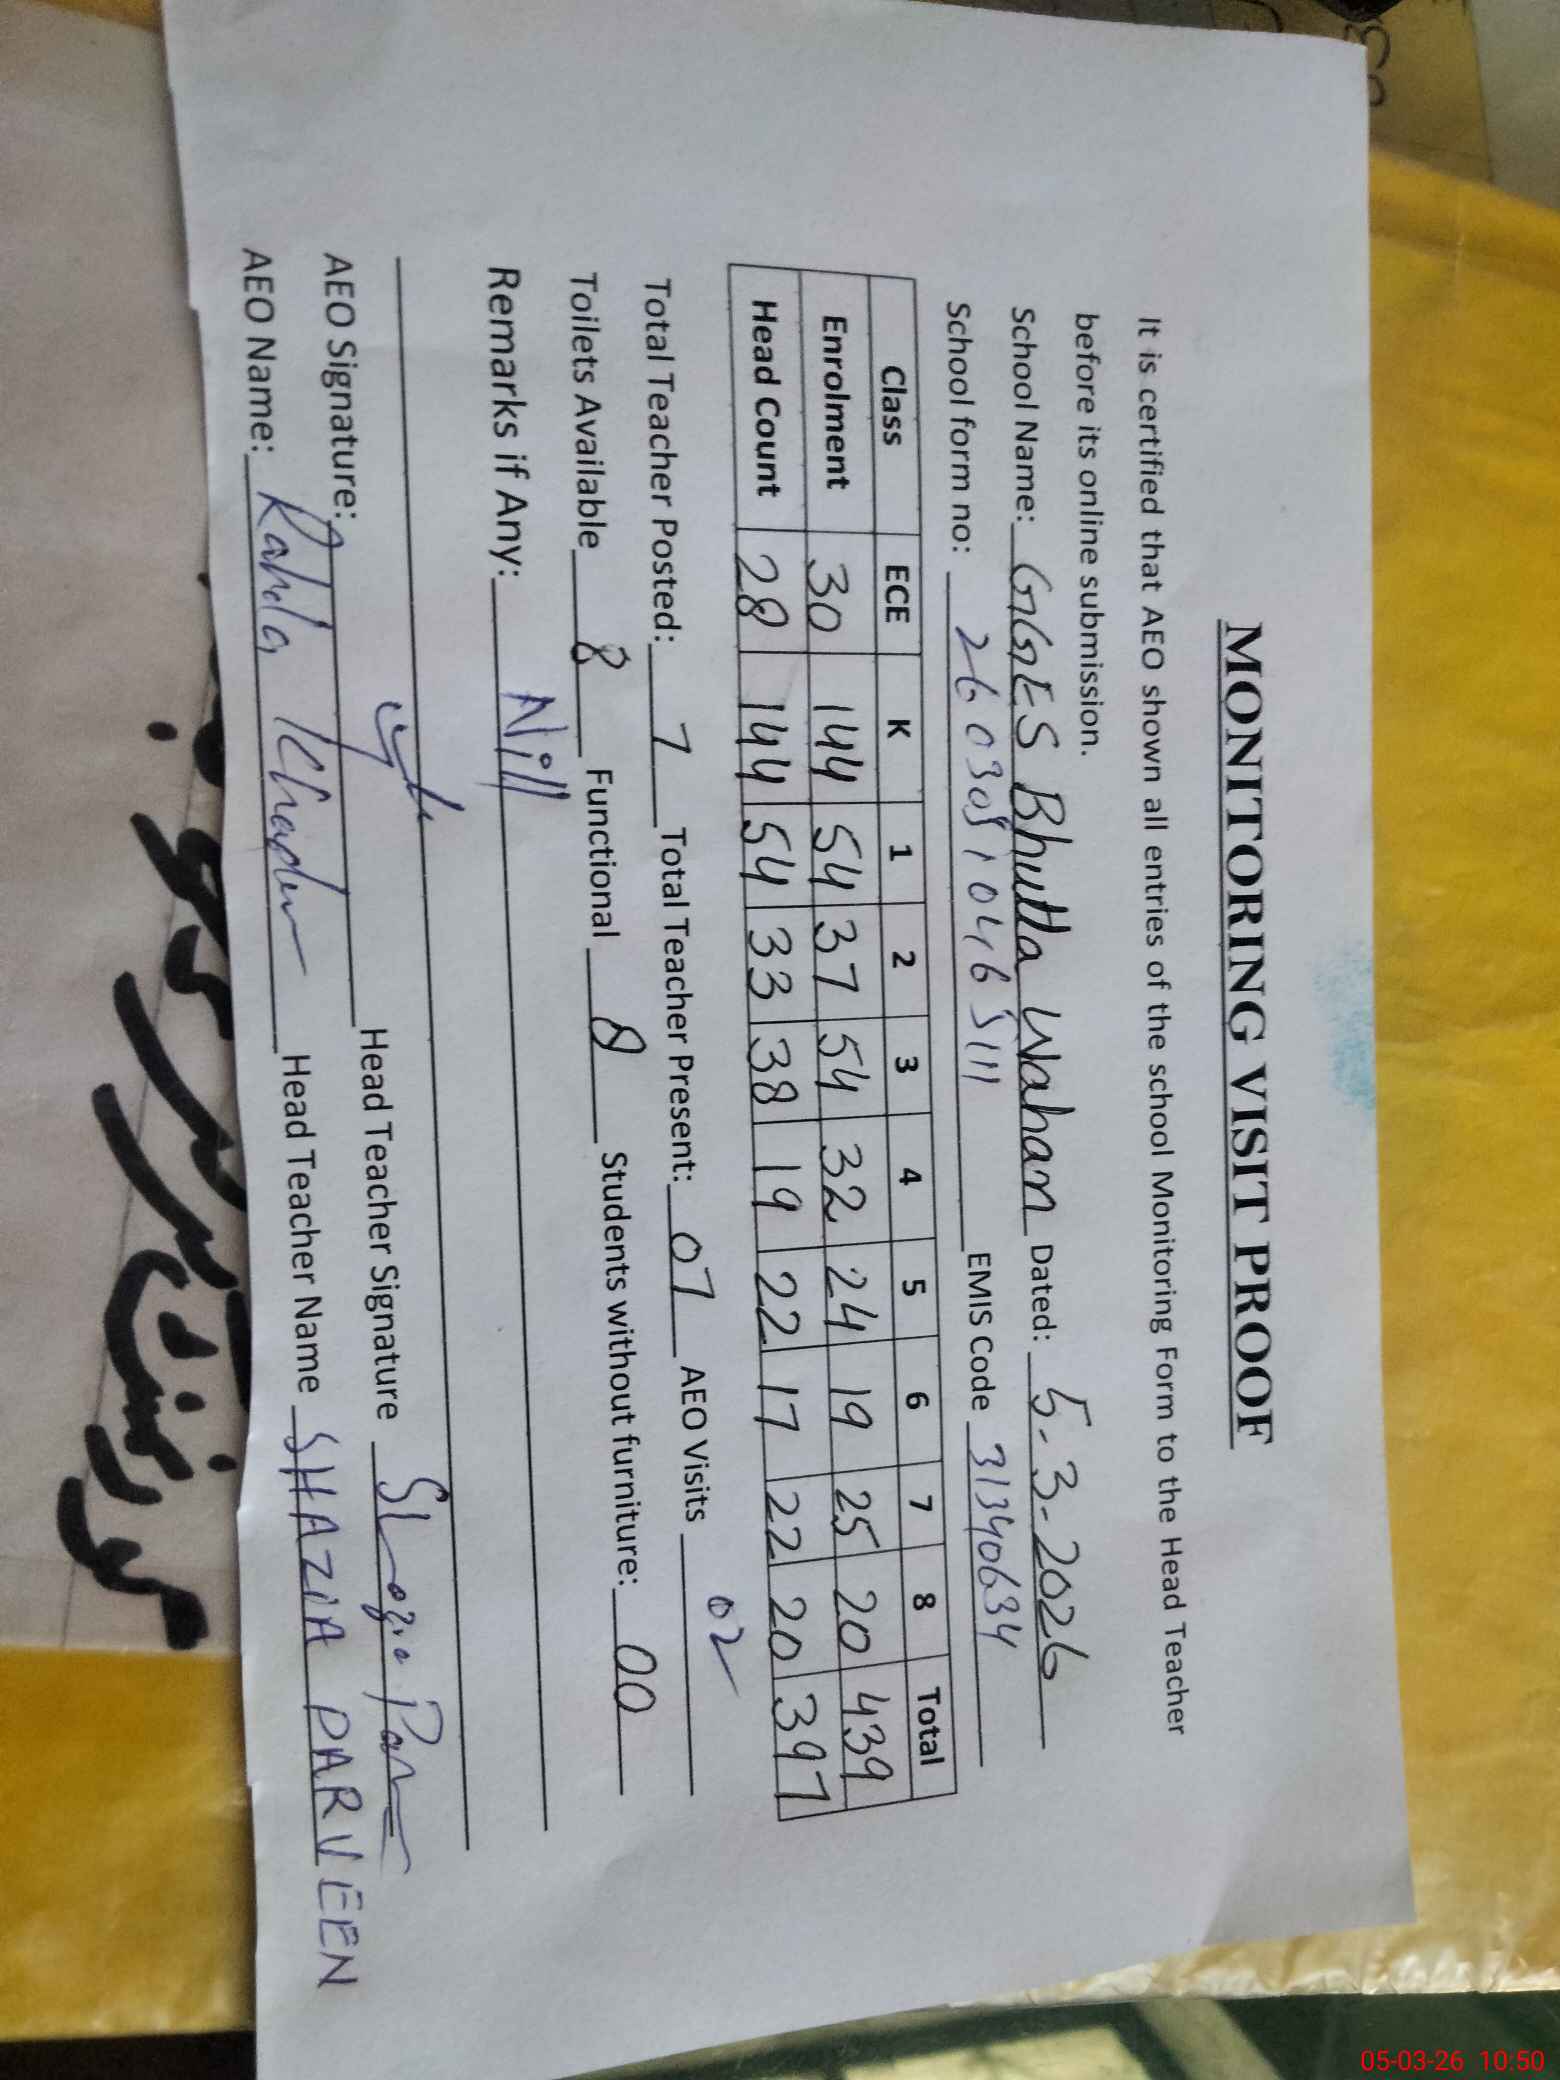 MONITORING VISIT PROOF
It is certified that AEO shown all entries of the school Monitoring Form to the Head Teacher
before its online submission.
School Name: GGES Bhutta Wahan Dated: 5-3-2026
School form no: EMIS Code 31340634
Class ECE K 1 2 3 4 5 6 7 8 Total
Enrolment 30 144 54 37 54 32 24 19 25 20 439
Head Count 28 144 54 33 38 19 22 17 22 20 397
Total Teacher Posted: 7 Total Teacher Present: 07 AEO Visits 02
Toilets Available 8 Functional 8 Students without furniture: 00
Remarks if Any: Nill
AEO Signature: Head Teacher Signature
AEO Name: Head Teacher Name SHAZIA PARVEEN
05-03-26 10:50